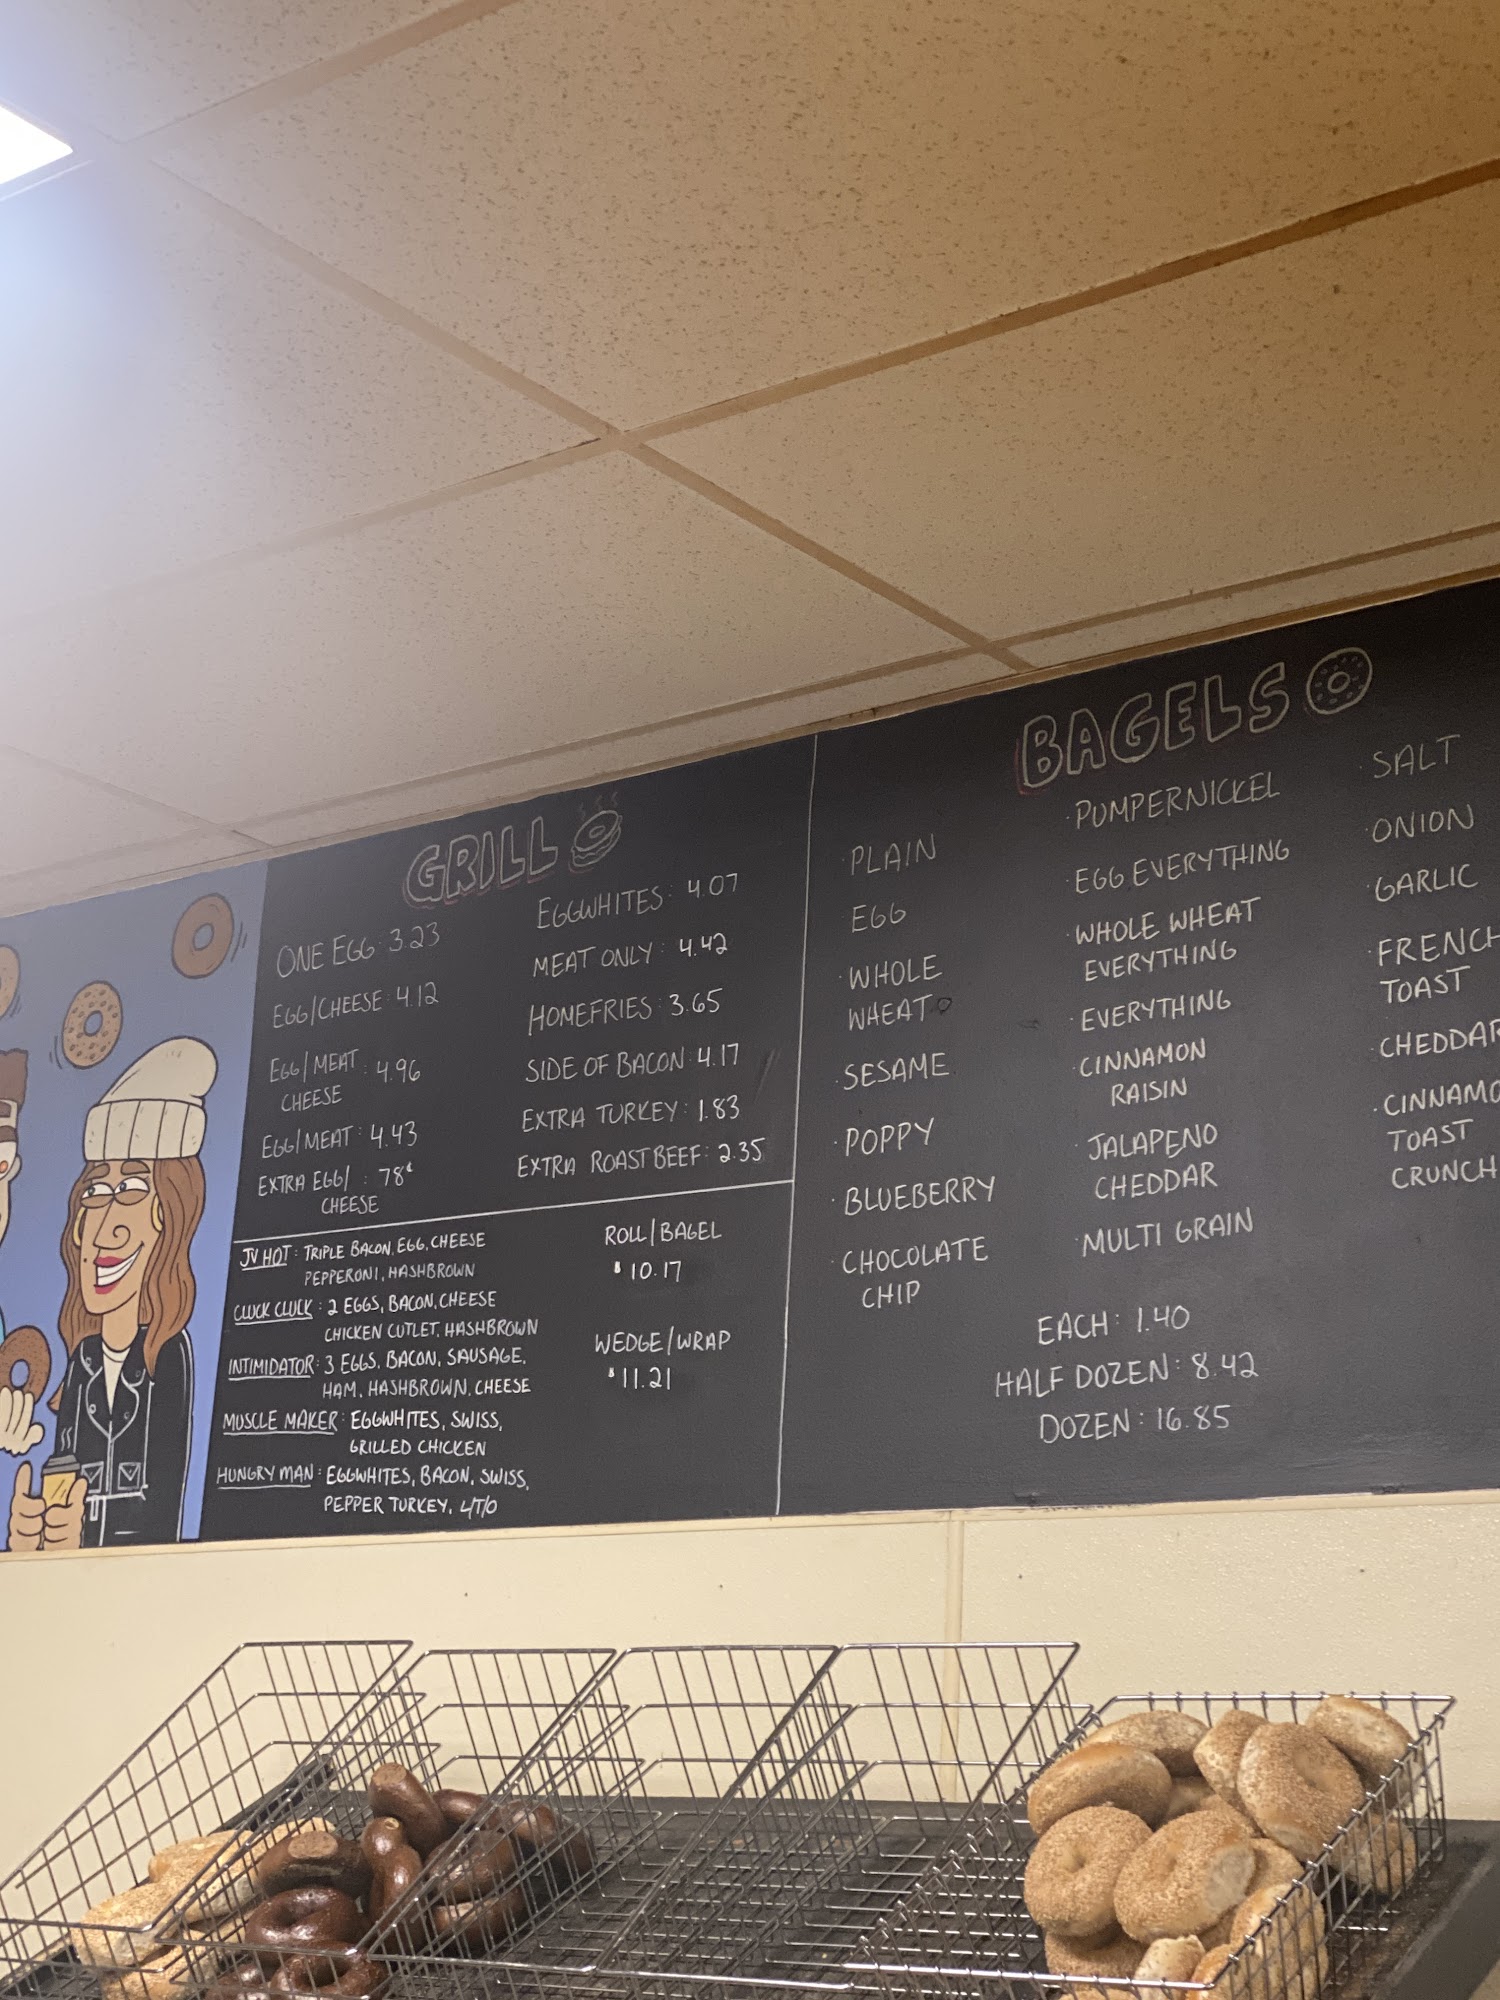 GRILL
ONE EGG: 3.23
EGG/CHEESE: 4.12
EGG/MEAT : 4.96
CHEESE
EGG/MEAT: 4.43
EXTRA EGG/ : 78¢
CHEESE
EGGWHITES: 4.07
MEAT ONLY: 4.42
HOMEFRIES: 3.65
SIDE OF BACON: 4.17
EXTRA TURKEY: 1.83
EXTRA ROAST BEEF: 2.35
JV HOT: TRIPLE BACON, EGG, CHEESE
PEPPERONI, HASHBROWN
CLUCK CLUCK: 2 EGGS, BACON, CHEESE
CHICKEN CUTLET, HASHBROWN
INTIMIDATOR: 3 EGGS, BACON, SAUSAGE,
HAM, HASHBROWN, CHEESE
MUSCLE MAKER: EGGWHITES, SWISS,
GRILLED CHICKEN
HUNGRY MAN: EGGWHITES, BACON, SWISS,
PEPPER TURKEY, L/T/O
ROLL/BAGEL
$10.17
WEDGE/WRAP
$11.21
BAGELS
· PLAIN
EGG
· WHOLE
WHEAT
· SESAME
· POPPY
· BLUEBERRY
· CHOCOLATE
CHIP
· PUMPERNICKEL
· EGG EVERYTHING
· WHOLE WHEAT
EVERYTHING
· EVERYTHING
· CINNAMON
RAISIN
· JALAPENO
CHEDDAR
· MULTI GRAIN
· SALT
· ONION
· GARLIC
· FRENCH
TOAST
· CHEDDAR
· CINNAMO
TOAST
CRUNCH
EACH: 1.40
HALF DOZEN: 8.42
DOZEN: 16.85